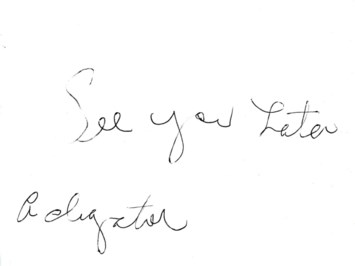 See you Later
Alligator